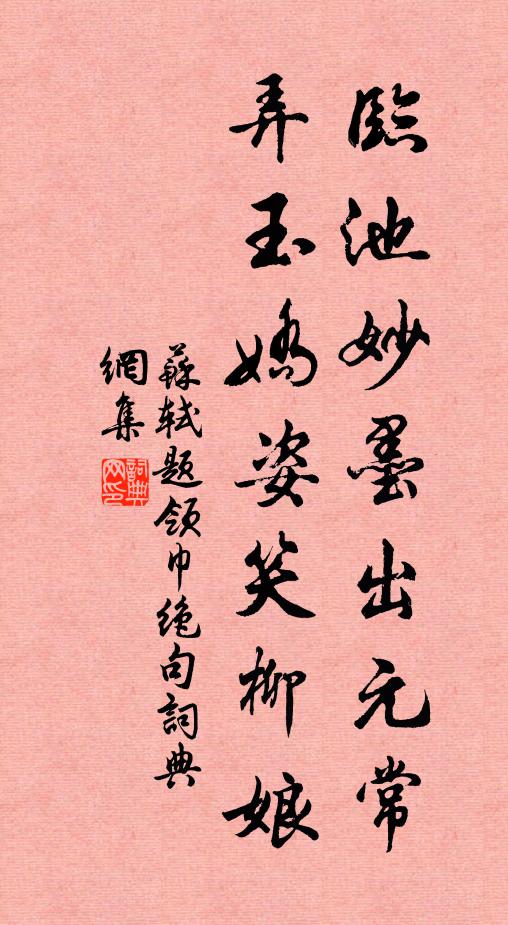 臨池妙墨出元常
弄玉嬌姿笑柳娘
蘇軾題領巾絶句詞典
網集
詞典
网印